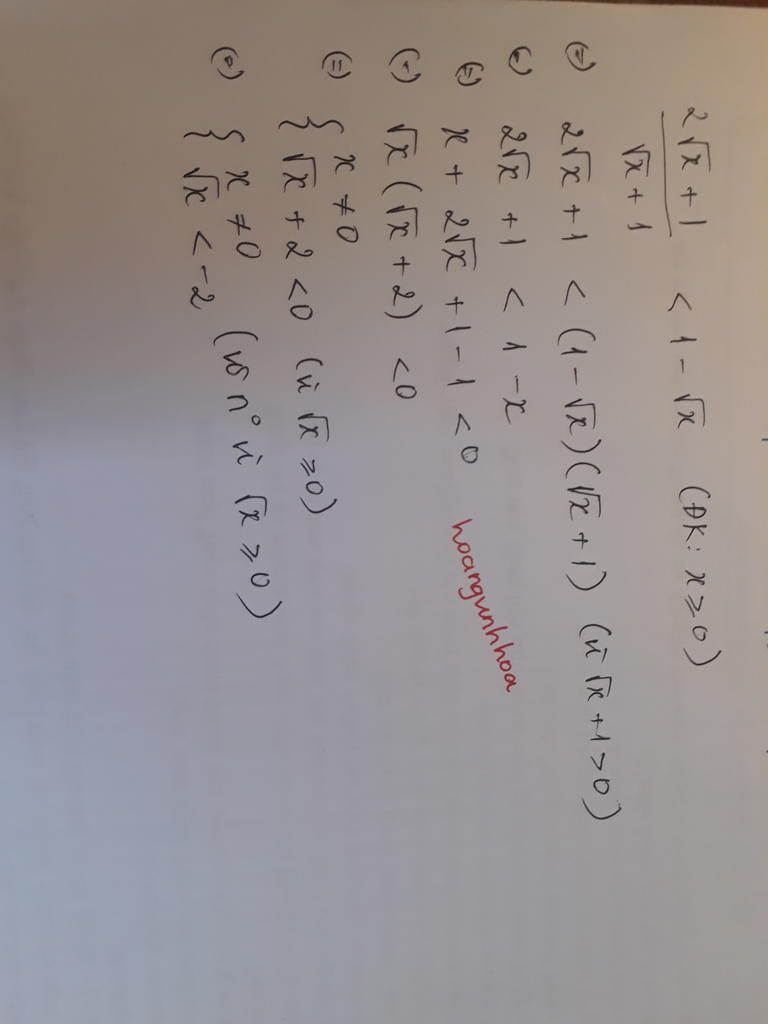 2√x + 1 / √x + 1 < 1 - √x (ĐK: x ≥ 0)
(=) 2√x + 1 < (1 - √x)(√x + 1) (vì √x + 1 > 0)
(=) 2√x + 1 < 1 - x
(=) x + 2√x + 1 - 1 < 0
(=) √x (√x + 2) < 0
(=) { x ≠ 0
{ √x + 2 < 0 (vì √x ≥ 0)
(=) { x ≠ 0
{ √x < -2 (vô nº vì √x ≥ 0)
hoangvnhhoa